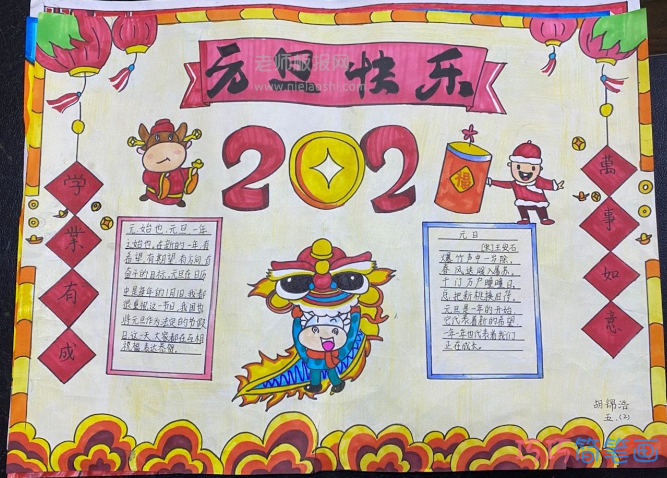 元旦快乐
老师板报网
www.nielaoshi.com
2021
福
学业有成
萬事如意
元,始也,元旦一年
之始也,在新的一年,有
希望,有期望,有方向,有
奋斗的目标,元旦在日历
中是每年的1月1日,我都
很重视这一节日,我国也
将元旦作为法定的节假
日,这一天,大家都在互相
祝福,表达希望.
元日
(宋)王安石
爆竹声中一岁除,
春风送暖入屠苏,
千门万户曈曈日,
总把新桃换旧符.
元旦是一年的开始,
它代表着新的希望,
一年一年也代表着我们
正在成长.
胡锦浩
五.(2)
简笔画